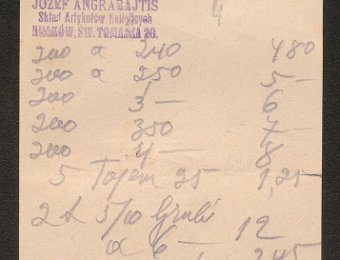 JÓZEF ANGRABAJTIS
Skład Artykułów Religijnych
KRAKÓW, ŚW. TOMASZA 20.
4
200 a 240 480
200 a 250 5—
200 3— 6
200 350 7—
200 4— 8
5 25 1,25
2 5/10 12
a 6—
245